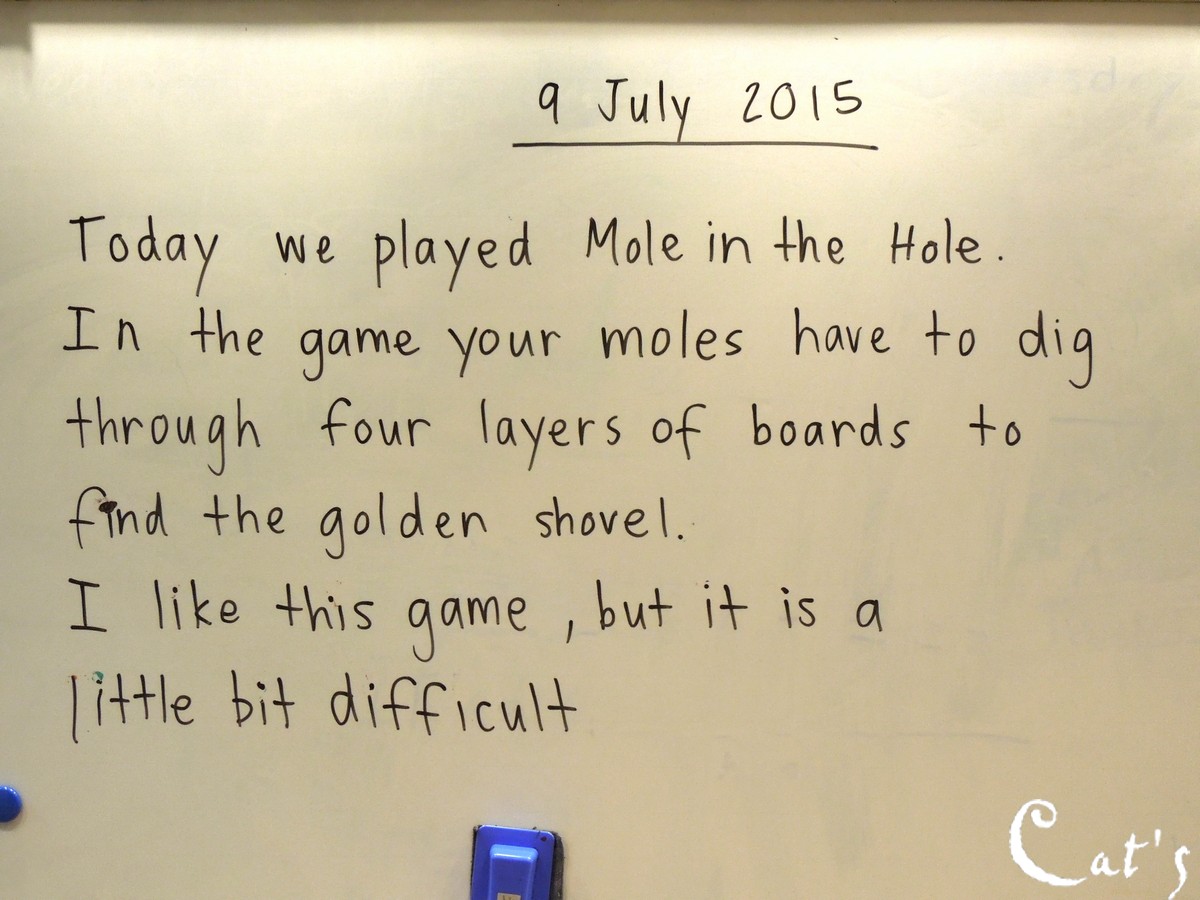 9 July 2015
Today we played Mole in the Hole.
In the game your moles have to dig
through four layers of boards to
find the golden shovel.
I like this game, but it is a
little bit difficult
Cat's